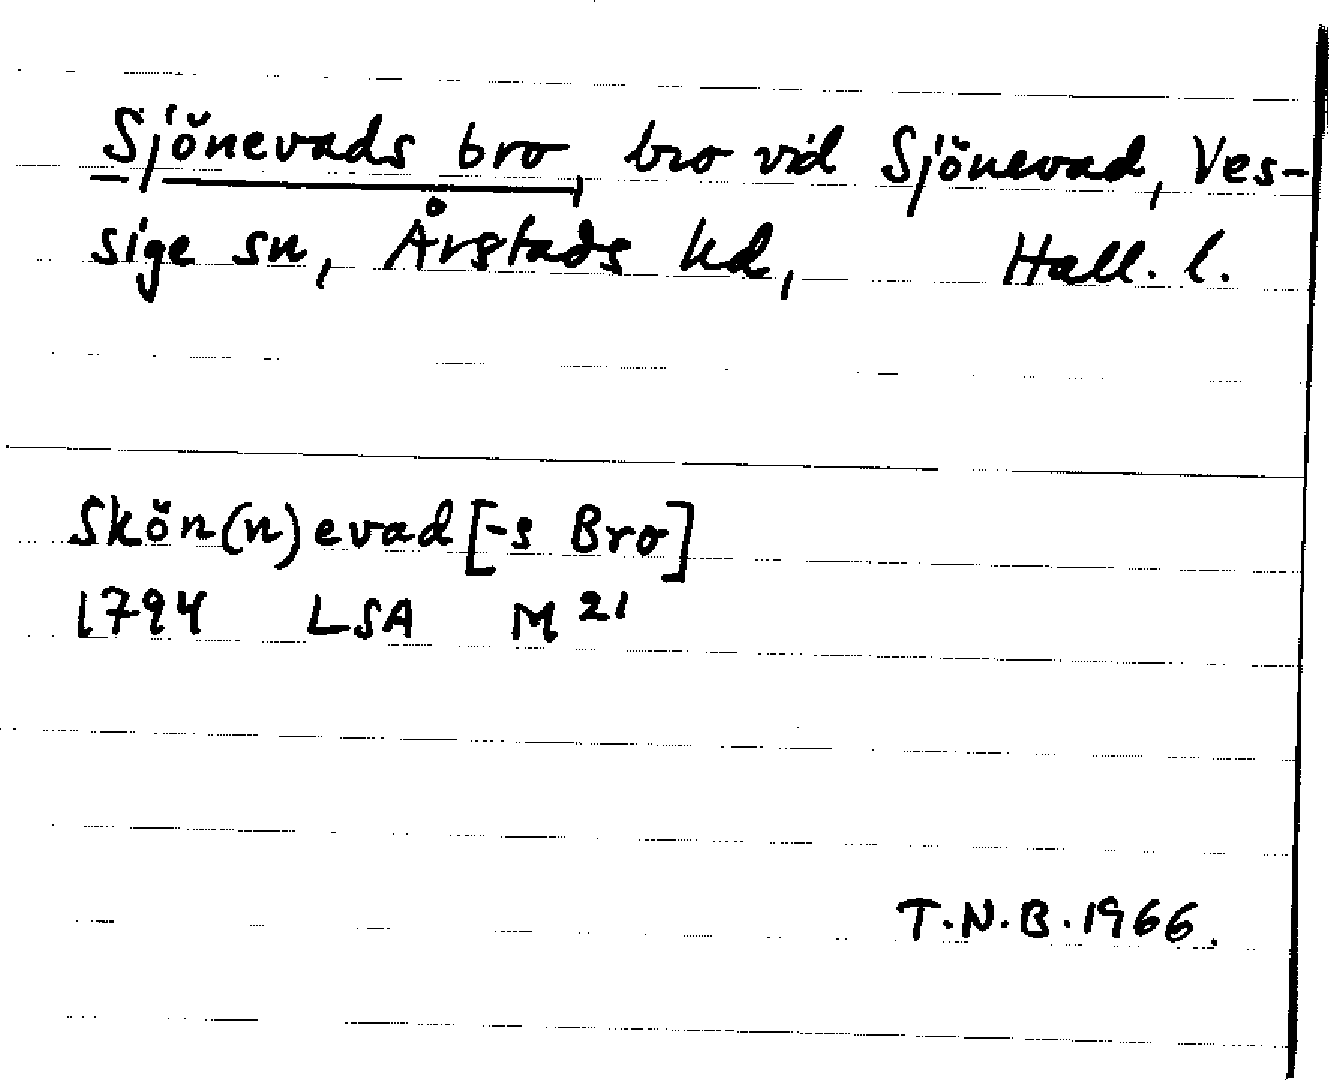 Sjönevads bro, bro vid Sjönevad, Ves-
sige sn, Årstads hd, Hall. l.
Skön(n)evad[-s Bro]
1794 LSA M 21
T.N.B. 1966.